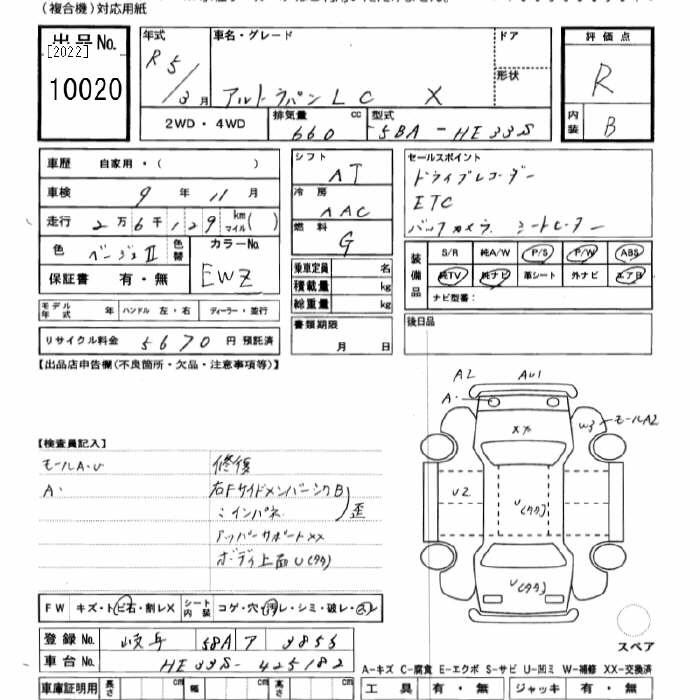 (複合機)対応用紙
出品No. [2022] 10020
年式 R5/3月
車名・グレード アルトラパンLC X
ドア
形状
評価点 R
内装 B
2WD・4WD
排気量 660 cc
型式 5BA-HE33S
車歴 自家用・( )
車検 9年 11月
走行 2万6千129 km マイル( )
色 ベージュII 色替
カラーNo. EWZ
保証書 有・無
モデル年式 年 ハンドル 左・右 ディーラー・並行
リサイクル料金 5670 円 預託済
シフト AT
冷房 AAC
燃料 G
乗車定員 名
積載量 kg
総重量 kg
書類期限 月 日
セールスポイント
ドライブレコーダー
ETC
バックカメラ シートヒーター
装備品
S/R 純A/W P/S P/W ABS
純TV 純ナビ 革シート 外ナビ エアB
ナビ型番:
後日品
【出品店申告欄(不良箇所・欠品・注意事項等)】
A2 AU1
A・
XX
W3 モールA2
U2
U(タタ)
U(タタ)
【検査員記入】
モールA・U
A・
修復
右FサイドメンバーインクB
〃インパネ 歪
アッパーサポートXX
ボディ上面U(タタ)
FW キズ・トビ石・割レX シート内装 コゲ・穴・汚レ・シミ・破レ・スレ
登録No. 岐阜 58A ア 3855
車台No. HE33S-425182
スペア
A-キズ C-腐食 E-エクボ S-サビ U-凹ミ W-補修 XX-交換済
車庫証明用 長さ cm 幅 cm 高さ cm
工具 有・無 ジャッキ 有・無